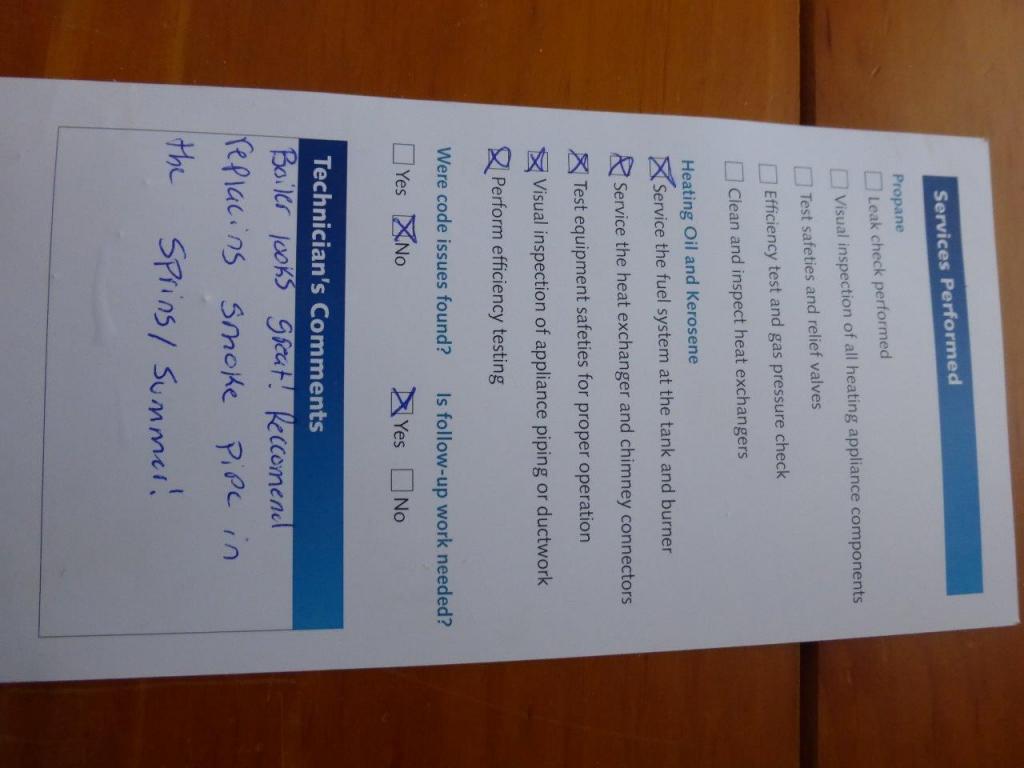 Services Performed
Propane
Leak check performed
Visual inspection of all heating appliance components
Test safeties and relief valves
Efficiency test and gas pressure check
Clean and inspect heat exchangers
Heating Oil and Kerosene
Service the fuel system at the tank and burner
Service the heat exchanger and chimney connectors
Test equipment safeties for proper operation
Visual inspection of appliance piping or ductwork
Perform efficiency testing
Were code issues found? Is follow-up work needed?
Yes No Yes No
Technician's Comments
Boiler looks great! Reccomend
replacing smoke pipe in
the Spring/Summer!